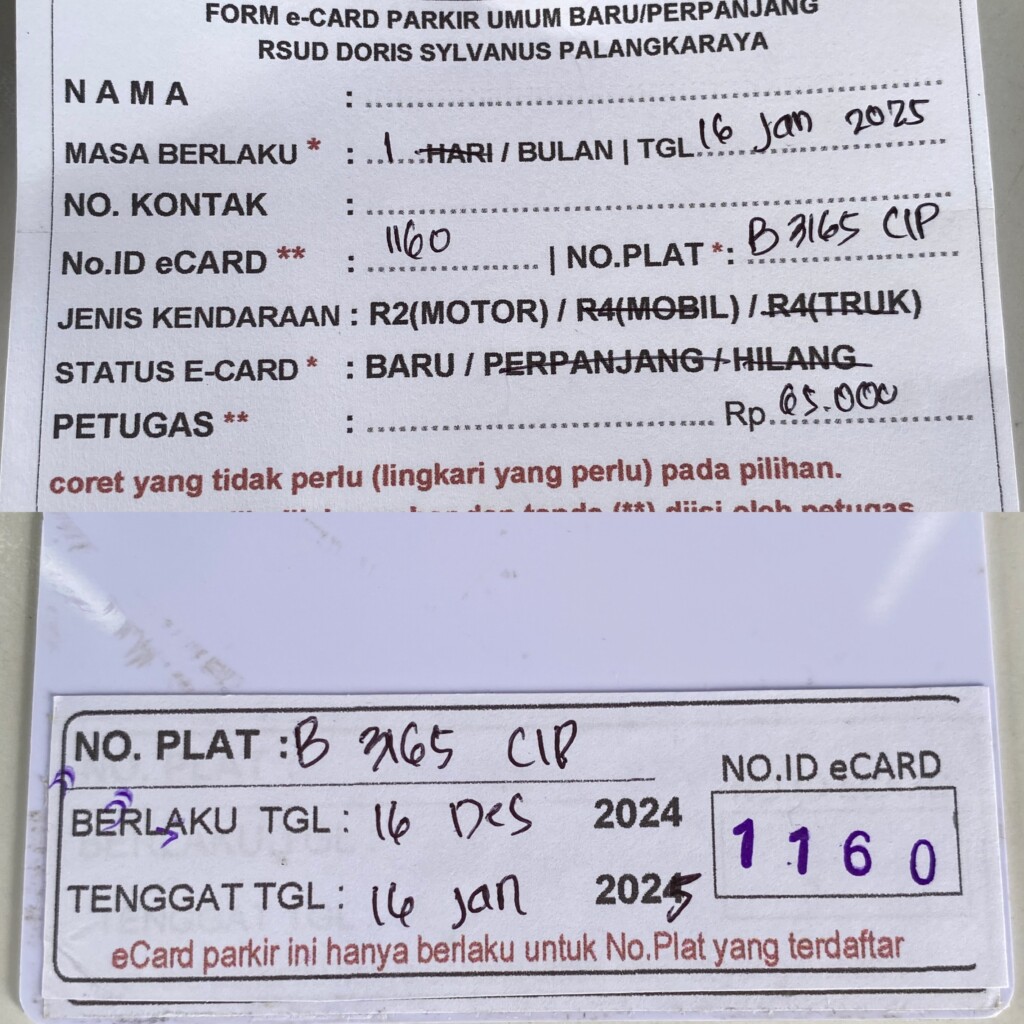 FORM e-CARD PARKIR UMUM BARU/PERPANJANG
RSUD DORIS SYLVANUS PALANGKARAYA
N A M A : ........................
MASA BERLAKU * : ..1.. HARI / BULAN | TGL 16 Jan 2025
NO. KONTAK : ........................
No.ID eCARD ** : 1160 | NO.PLAT *: B 3165 CIP
JENIS KENDARAAN : R2(MOTOR) / R4(MOBIL) / R4(TRUK)
STATUS E-CARD * : BARU / PERPANJANG / HILANG
PETUGAS ** : ........................ Rp. 65.000
coret yang tidak perlu (lingkari yang perlu) pada pilihan.
tanda (**) diisi oleh petugas
NO. PLAT : B 3165 CIP
BERLAKU TGL : 16 Des 2024
TENGGAT TGL : 16 Jan 2025
NO.ID eCARD
1160
eCard parkir ini hanya berlaku untuk No.Plat yang terdaftar